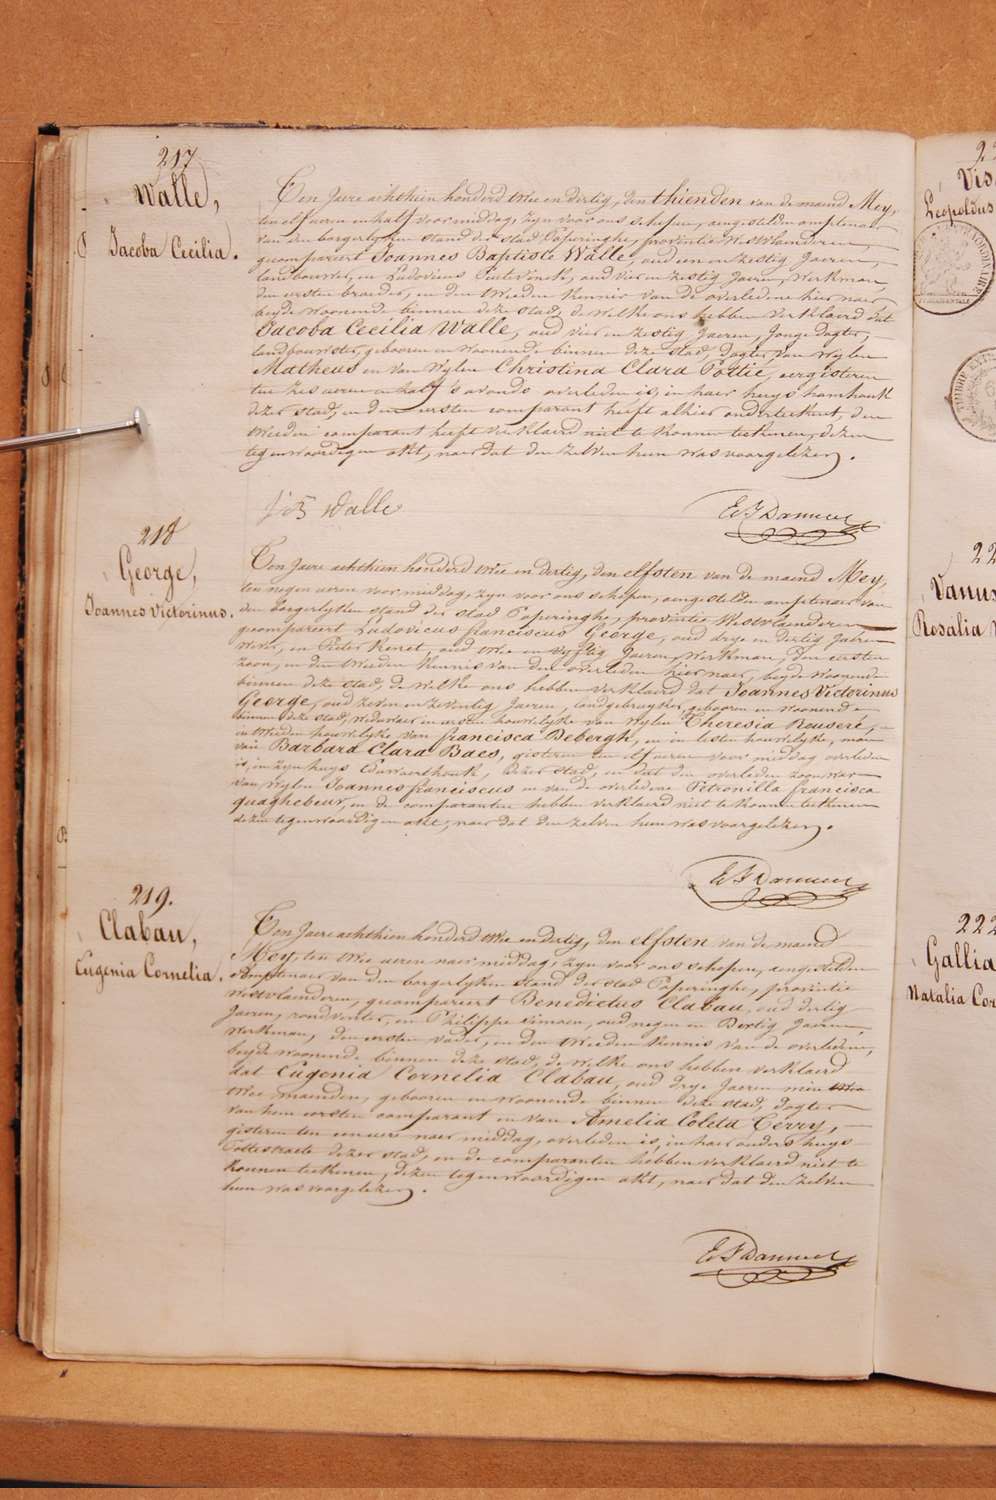 217
Walle,
Jacoba Cecilia.
Ten Jaere achthien honderd twee en dertig, den thienden van de maend Mey,
ten elf ueren en half voor middag, zyn voor ons schepen, aengestelden amptenaer
van den borgerlyken stand der stad Poperinghe, provintie Westvlaenderen,
gecompareert Joannes Baptiste Walle, oud een en zestig Jaeren,
landbouwer, en Ludovicus, oud vier en zestig Jaeren, werkman,
den eersten broeder, en den tweeden kennis van de overledene hier naer
beyde woonende binnen deze stad, de welke ons hebben verklaerd dat
Jacoba Cecilia Walle, oud vier en zestig Jaeren, Jonge dogter,
landbouwster, gebooren en woonende binnen deze stad, dogter van wylen
Matheus en van wylen Christina Clara Pottie, eergisteren
ten zes ueren en half 's avonds overleden is, in haer huys hamhouk
dezer stad, en den eersten comparant heeft alhier onderteekent, den
tweeden comparant heeft verklaerd niet te konnen teekenen, dezen
tegenwoordigen akt, naer dat den zelven hun was voorgelezen.
J B Walle
218
George,
Joannes Victorinus.
Ten Jaere achthien honderd twee en dertig, den elfsten van de maend Mey,
ten negen ueren voor middag, zyn voor ons schepen, aengestelden amptenaer van
den borgerlyken stand der stad Poperinghe, provintie Westvlaenderen
gecompareert Ludovicus franciscus George, oud drye en dertig Jaeren
wever, en Pieter Renet, oud twee en vyftig Jaeren, werkman, den eersten
zoon, en den tweeden kennis van den overleden hier naer, beyde woonende
binnen deze stad, de welke ons hebben verklaerd dat Joannes Victorinus
George, oud zeven en zeventig Jaeren, landgebruyker, gebooren en woonende
binnen deze stad, weduwaer in eersten houwelyke van wylen Theresia Rouseré,
in tweeden houwelyke van francisca Debergh, en in lesten houwelyke, man
van Barbara Clara Baes, gisteren ten elf ueren voor middag overleden
is, in zyn huys Edewaerthouk, dezer stad, en dat den overleden zoon was
van wylen Joannes franciscus en van de overledene Petronilla francisca
quaghebeur, en de comparanten hebben verklaerd niet te konnen teekenen
dezen tegenwoordigen akt, naer dat den zelven hun was voorgelezen.
219.
Clabau,
Eugenia Cornelia.
Ten Jaere achthien honderd twee en dertig, den elfsten van de maend
Mey, ten twee ueren naer middag, zyn voor ons schepen, aengestelden
amptenaer van den borgerlyken stand der stad Poperinghe, provintie
Westvlaenderen, gecompareert Benedictus Clabau, oud dertig
Jaeren, rondventer, en Philippe Simoen, oud negen en dertig Jaeren,
werkman, den eersten vader, en den tweeden kennis van de overledene,
beyde woonende binnen deze stad, de welke ons hebben verklaerd
dat Eugenia Cornelia Clabau, oud drye Jaeren min
twee maenden, gebooren en woonende binnen deze stad, dogter
van hem eersten comparant en van Amelia Coleta Cerry,
gisteren ten een uere naer middag, overleden is, in haer ouders huys
dezer stad, en de comparanten hebben verklaerd niet te
konnen teekenen, dezen tegenwoordigen akt, naer dat den zelven
hun was voorgelezen.
Leopoldus
Rosalia
222
Gallia
Natalia Cor